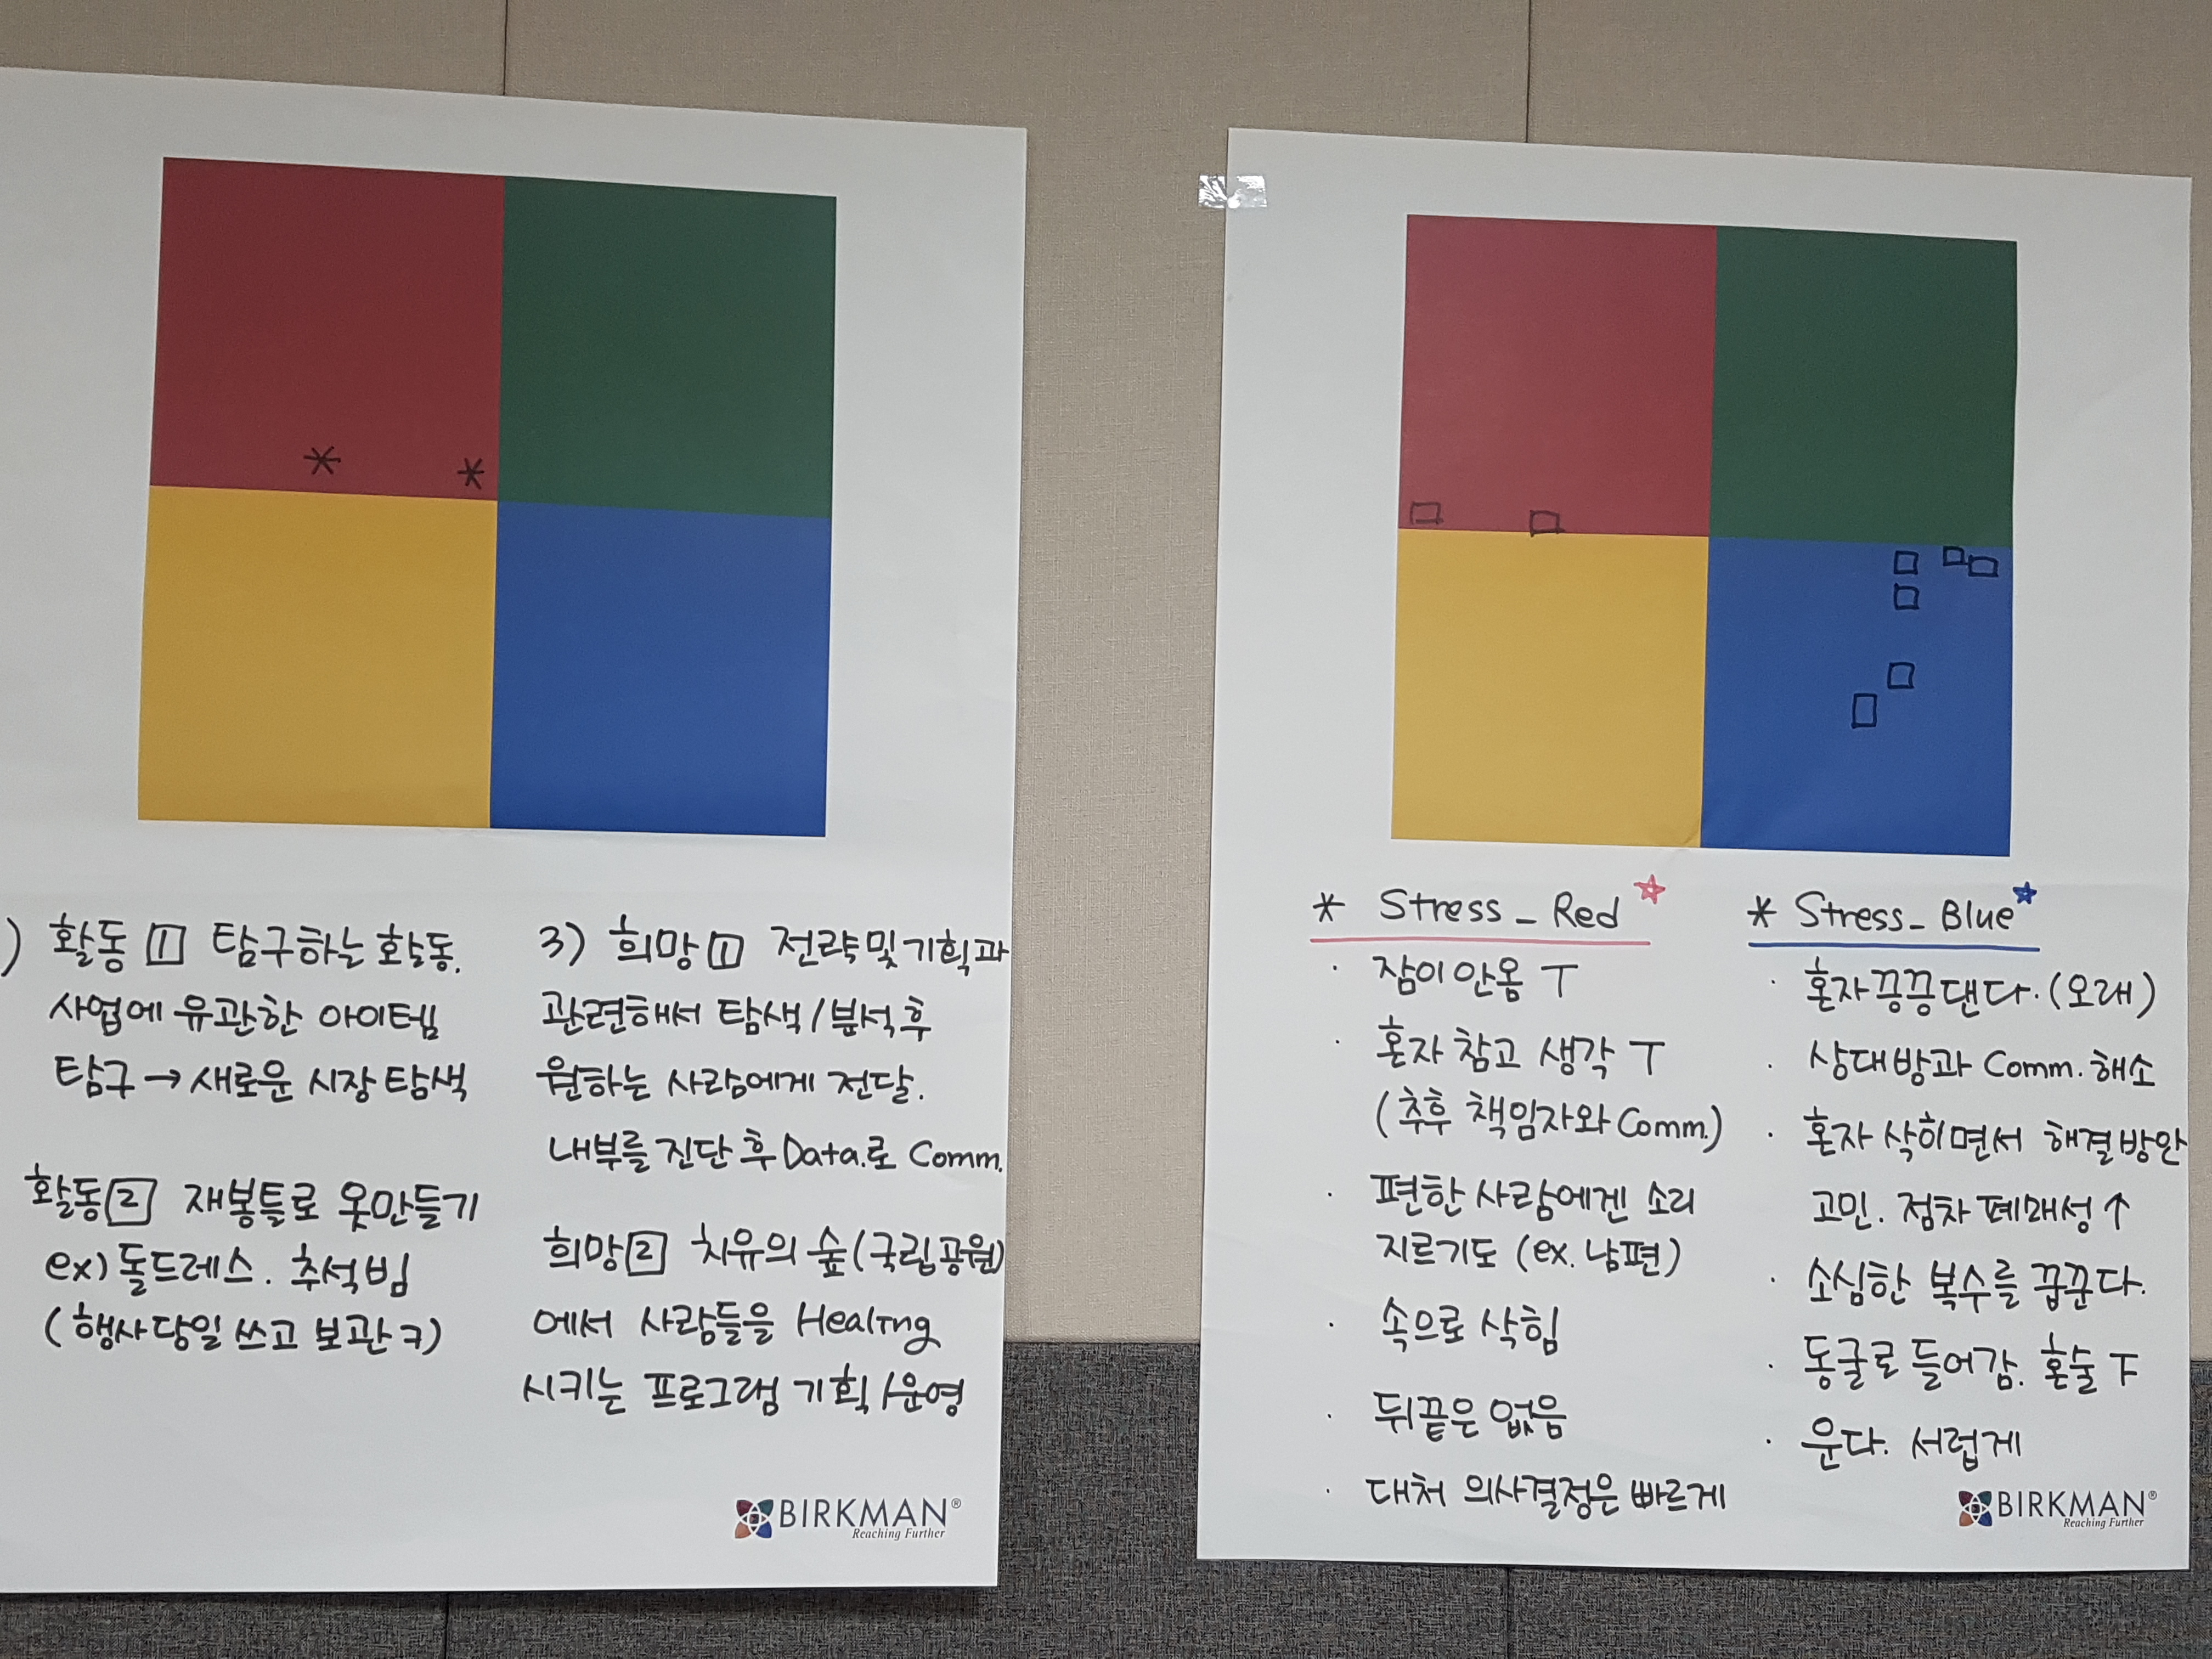 ) 활동 1 탐구하는 활동.
사업에 유관한 아이템
탐구 → 새로운 시장 탐색
활동 2 재봉틀로 옷만들기
ex) 돌드레스. 추석빔
(행사당일 쓰고 보관ㅋ)
3) 희망 1 전략 및 기획과
관련해서 탐색/분석 후
원하는 사람에게 전달.
내부를 진단 후 Data.로 Comm.
희망 2 치유의 숲(국립공원)
에서 사람들을 Healing
시키는 프로그램 기획/운영
BIRKMAN®
Reaching Further
* Stress_Red
· 잠이 안옴 ㅜ
· 혼자 참고 생각 ㅜ
(추후 책임자와 Comm.)
· 편한 사람에겐 소리
지르기도 (ex. 남편)
· 속으로 삭힘
· 뒤끝은 없음
· 대처 의사결정은 빠르게
* Stress_Blue
· 혼자 끙끙댄다. (오래)
· 상대방과 Comm. 해소
· 혼자 삭히면서 해결방안
고민. 점차 폐쇄성 ↑
· 소심한 복수를 꿈꾼다.
· 동굴로 들어감. 혼술
· 운다. 서럽게
BIRKMAN®
Reaching Further